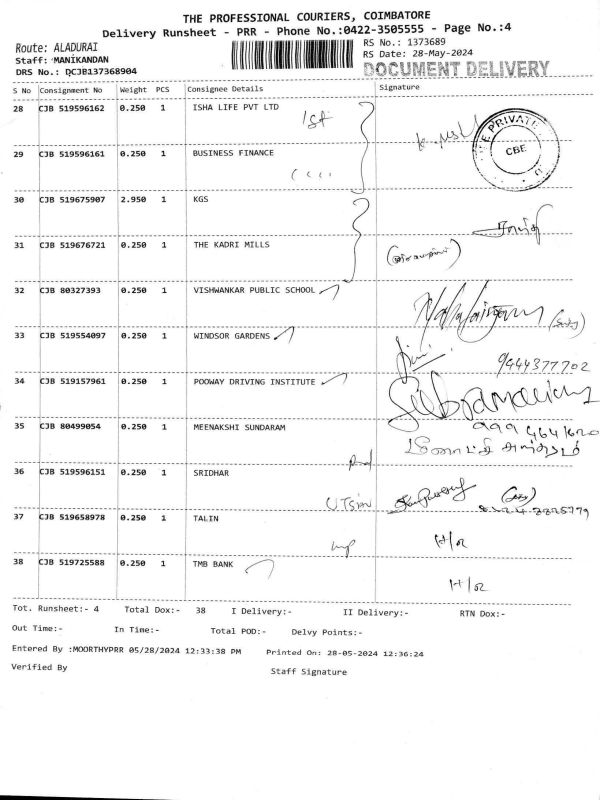 THE PROFESSIONAL COURIERS, COIMBATORE
Delivery Runsheet - PRR - Phone No.:0422-3505555 - Page No.:4
Route: ALADURAI
RS No.: 1373689
Staff: MANIKANDAN
RS Date: 28-May-2024
DRS No.: DCJB137368904
DOCUMENT DELIVERY
S No Consignment No Weight PCS Consignee Details Signature
28 CJB 519596162 0.250 1 ISHA LIFE PVT LTD
PRIVATE
CBE
29 CJB 519596161 0.250 1 BUSINESS FINANCE
30 CJB 519675907 2.950 1 KGS
31 CJB 519676721 0.250 1 THE KADRI MILLS
32 CJB 80327393 0.250 1 VISHWANKAR PUBLIC SCHOOL
33 CJB 519554097 0.250 1 WINDSOR GARDENS
9444377702
34 CJB 519157961 0.250 1 POOWAY DRIVING INSTITUTE
35 CJB 80499054 0.250 1 MEENAKSHI SUNDARAM
36 CJB 519596151 0.250 1 SRIDHAR
37 CJB 519658978 0.250 1 TALIN
38 CJB 519725588 0.250 1 TMB BANK
Tot. Runsheet:- 4 Total Dox:- 38 I Delivery:- II Delivery:- RTN Dox:-
Out Time:- In Time:- Total POD:- Delvy Points:-
Entered By :MOORTHYPRR 05/28/2024 12:33:38 PM Printed On: 28-05-2024 12:36:24
Verified By Staff Signature